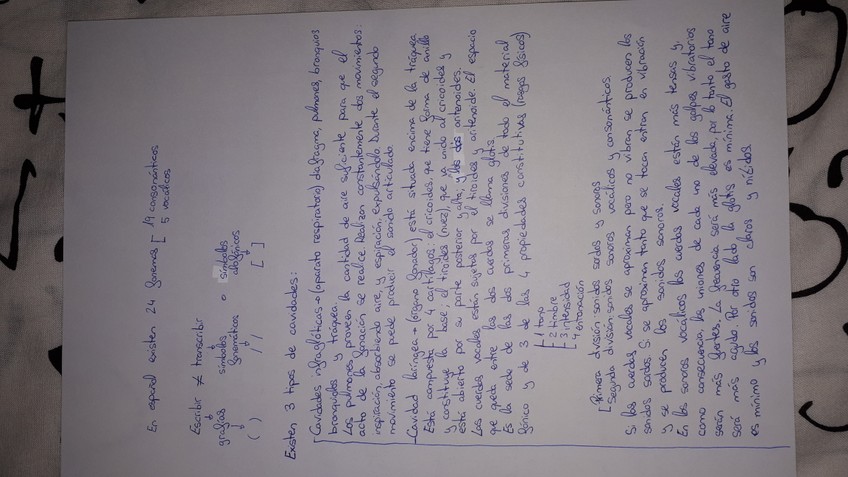 En español existen 24 fonemas [ 19 consonánticos
5 vocálicos
Escribir ≠ transcribir
grafías símbolos o símbolos
fonemáticos alofónicos
( ) / / [ ]
Existen 3 tipos de cavidades:
Cavidades infraglóticas → (aparato respiratorio) diafragma, pulmones, bronquios
bronquiolos y tráquea
Los pulmones proveen la cantidad de aire suficiente para que el
acto de la fonación se realice. Realizan constantemente dos movimientos:
inspiración, absorbiendo aire, y espiración, expulsándolo. Durante el segundo
movimiento se puede producir el sonido articulado.
Cavidad laríngea → (órgano fonador) está situada encima de la tráquea
Está compuesta por 4 cartílagos: el cricoides, que tiene forma de anillo
y constituye la base; el tiroides (nuez), que va unido al cricoides y
está abierto por su parte posterior y alta; y los dos aritenoides.
Las cuerdas vocales están sujetas por el tiroides y aritenoide. El espacio
que queda entre las dos cuerdas se llama glotis.
Es la sede de las dos primeras divisiones de todo el material
fónico y de 3 de las 4 propiedades constitutivas (rasgos físicos)
1 tono
2 timbre
3 intensidad
4 entonación
[ Primera división sonidos sordos y sonoros
Segunda división sonidos sonoros vocálicos y consonánticos.
Si las cuerdas vocales se aproximan pero no vibran se producen los
sonidos sordos. Si se aproximan tanto que se tocan entran en vibración
y se producen los sonidos sonoros.
En los sonoros vocálicos las cuerdas vocales están más tensas y,
como consecuencia, las uniones de cada uno de los golpes vibratorios
serán más fuertes. La frecuencia será más elevada, por lo tanto el tono
será más agudo. Por otro lado la glotis es mínima. El gasto de aire
es mínimo y los sonidos son claros y nítidos.